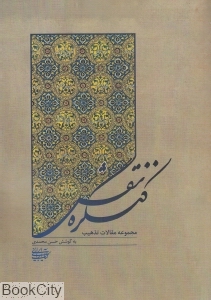 کنگره نقش
مجموعه مقالات تذهیب
به کوشش حسن محمدی
BookCity
BookCity